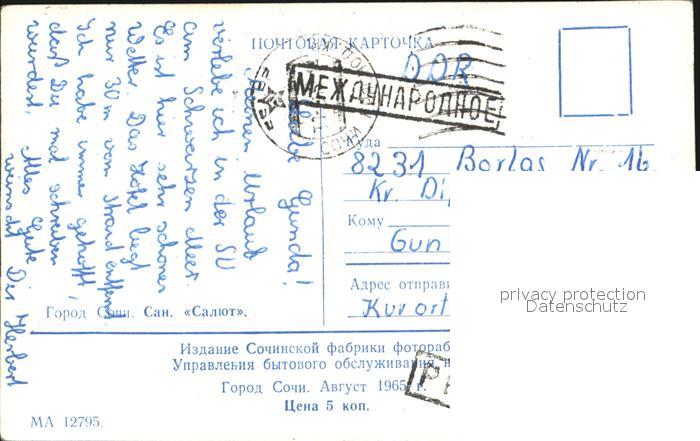 ПОЧТОВАЯ КАРТОЧКА
DDR
МЕЖДУНАРОДНОЕ
СОЧИ
Куда
8231 Borlas Nr. 16
Kr. Di
Кому
Gun
Адрес отправи
Kurort
privacy protection
Datenschutz
Liebe Gunda!
Meinen Urlaub
verlebe ich in der SU
am Schwarzen Meer.
Es ist hier sehr schönes
Wetter. Das Hotel liegt
nur 30 m vom Strand entfernt
Ich habe immer gehofft,
daß Du mal schreiben
würdest. Alles Gute
wünscht Dir Herbert
Город Сочи. Сан. «Салют».
Издание Сочинской фабрики фотораб
Управления бытового обслуживания
Город Сочи. Август 1965 г.
Цена 5 коп.
МА 12795.